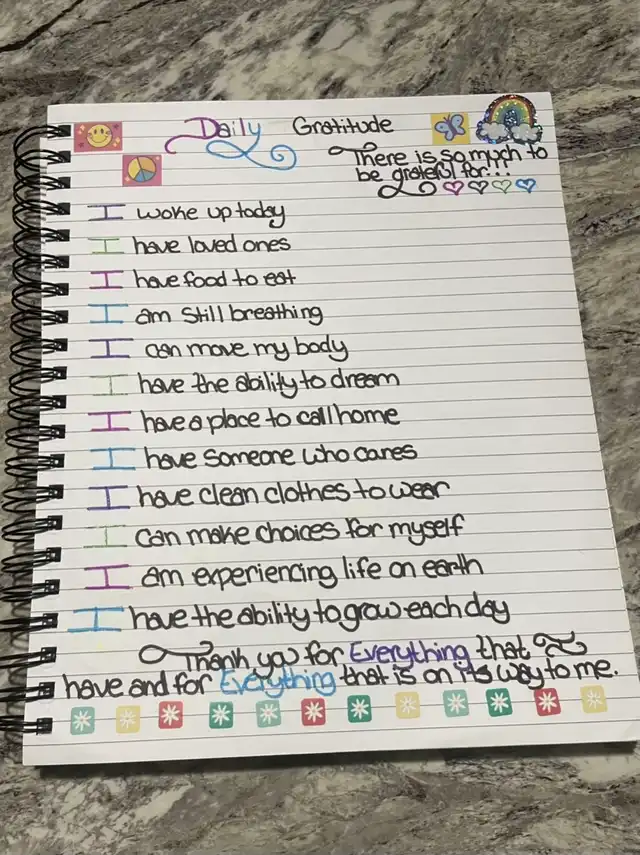 Daily Gratitude
There is so much to
be grateful for...
I woke up today
I have loved ones
I have food to eat
I am still breathing
I can move my body
I have the ability to dream
I have a place to call home
I have someone who cares
I have clean clothes to wear
I can make choices for myself
I am experiencing life on earth
I have the ability to grow each day
Thank you for Everything that I
have and for Everything that is on its way to me.